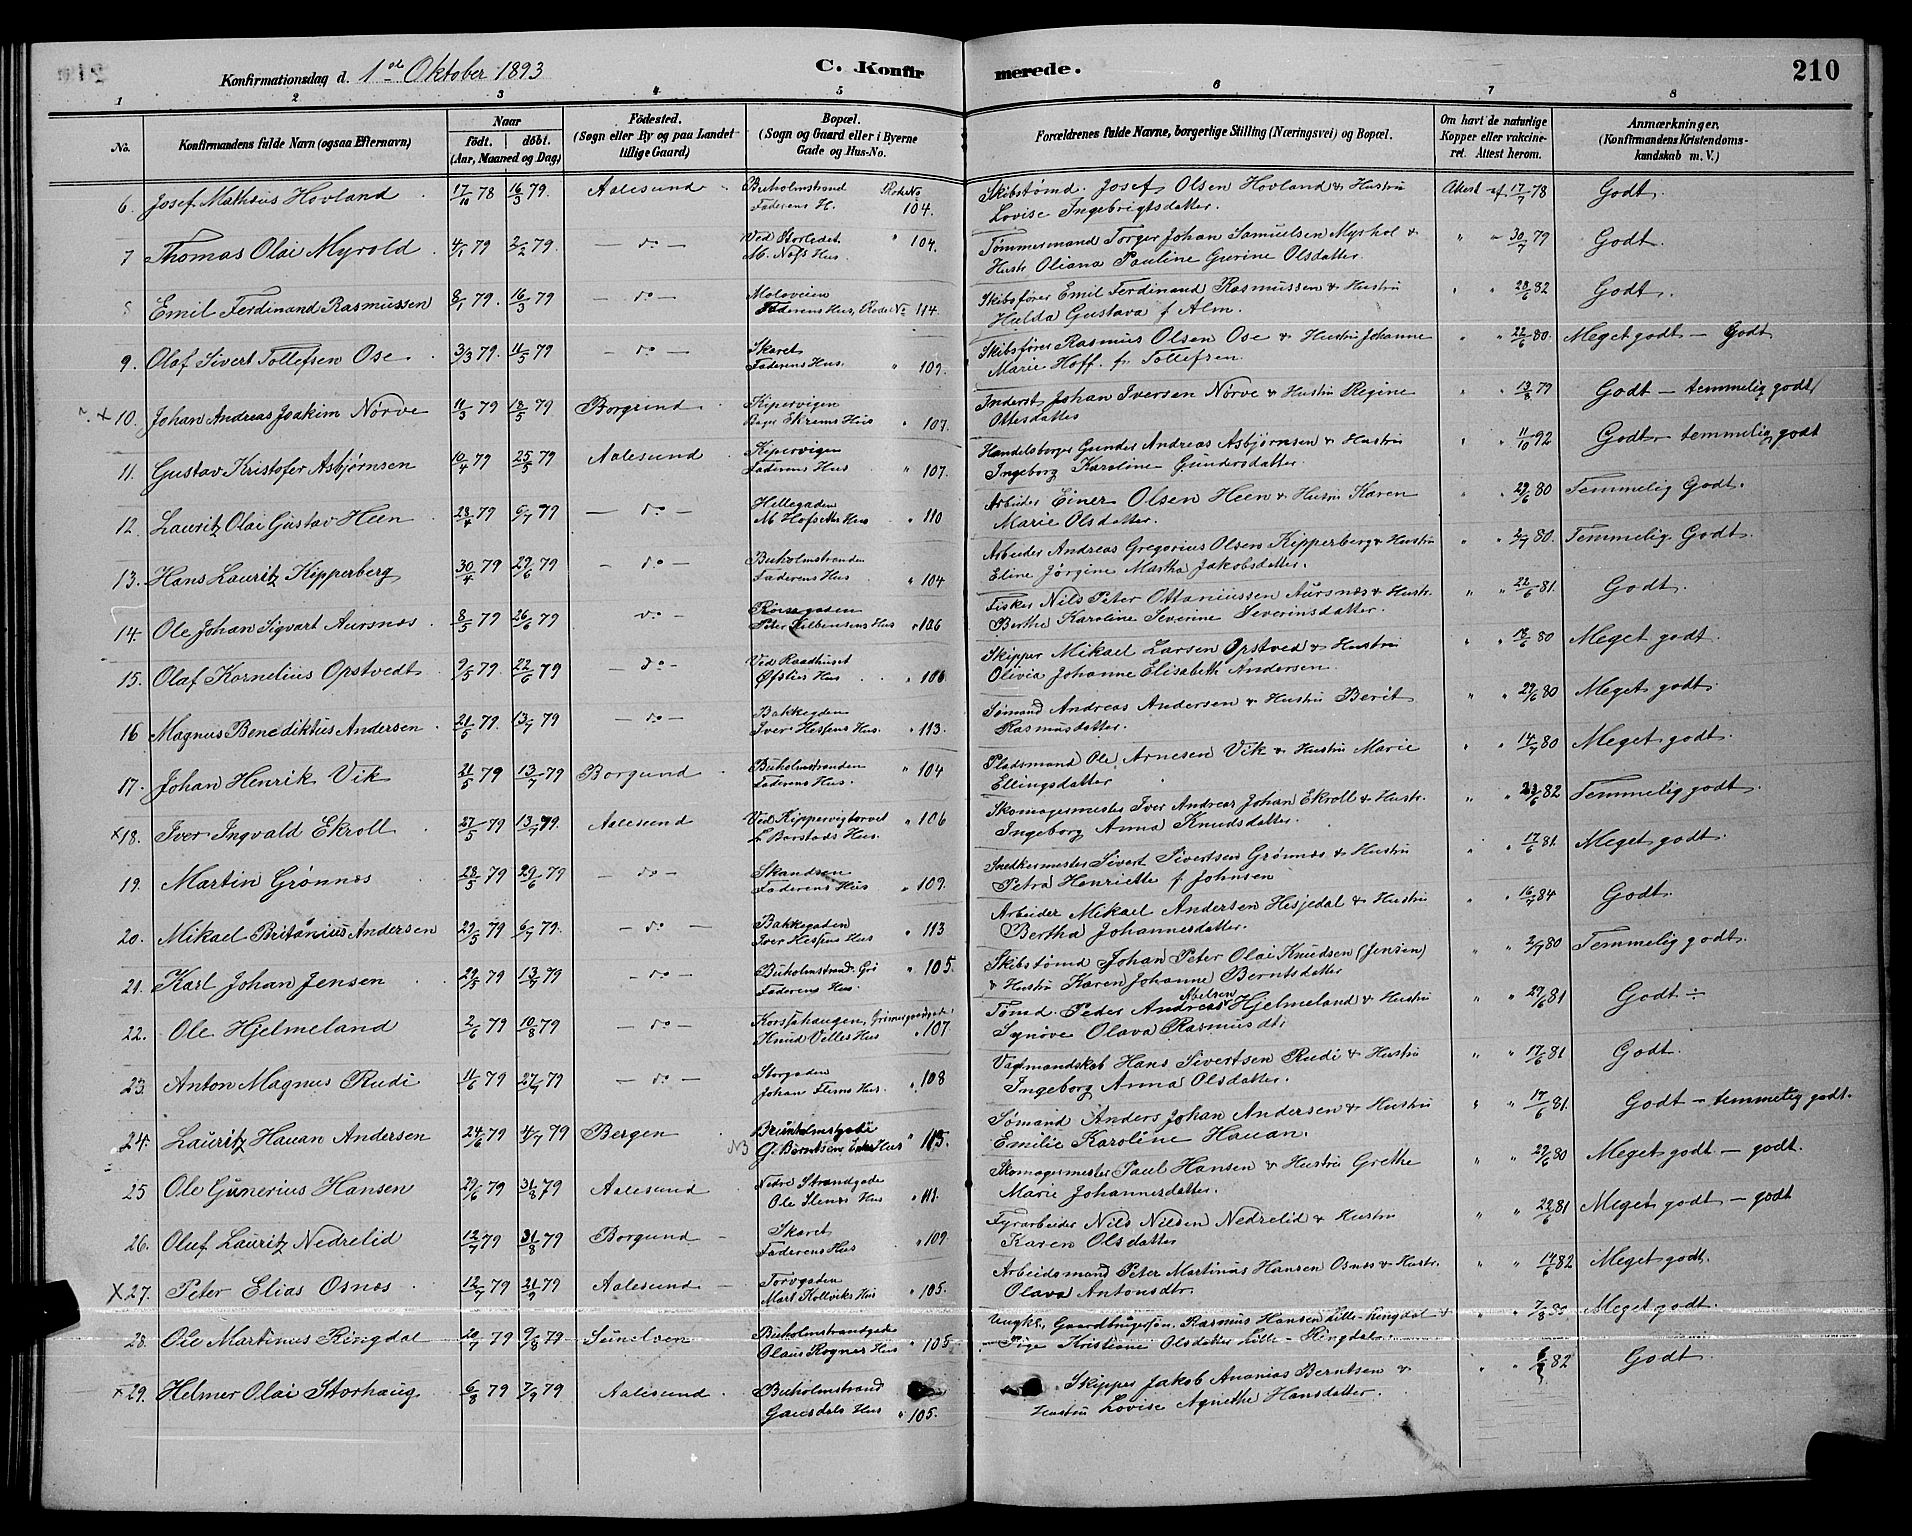 Konfirmationsdag d. 1ste Oktober 1893
C. Konfirmerede.
210
1 2 3 4 5 6 7 8
No.
Konfirmandens fulde Navn (ogsaa Efternavn)
Naar
født. døbt.
(Aar, Maaned og Dag)
Fødested.
(Sogn eller By og paa Landet
tillige Gaard)
Bopæl.
(Sogn og Gaard eller i Byerne
Gade og Hus-No.
Forældrenes fulde Navne, borgerlige Stilling (Næringsvei) og Bopæl.
Om havt de naturlige
Kopper eller vakcine-
ret. Attest herom.
Anmærkninger.
(Konfirmandens Kristendoms-
kundskab m. V.)
6. Josef Mathias Hovland 17/10 78 16/3 79. Aalesund Buholmstrand Rode No
Faderens H. 104.
Skibstømd. Josef Olsen Hovland & Hustru
Lovise Ingebrigtsdatter. Attest af 17/7 78 Godt.
7 Thomas Olai Myrold 4/1 79 2/2 79. — do — Ved Storledet " 104.
Hus.
Tømmermand Torger Johan Samuelsen Myrhol &
Hustr Oliana Pauline Gurine Olsdatter. " " 30/7 79 Godt.
8 Emil Ferdinand Rasmussen 8/1 79. 16/3 79 — do — Moloveien
Faderens Hus, Rode No 114.
Skibsfører Emil Ferdinand Rasmussen & Hustru
Hulda Gustava f Alm. " " 28/6 82 Godt.
9. Olaf Sivert Tollefsen Ose 3/3 79. 11/5 79 — do — Skaret
Faderens Hus. " 109.
Skibsfører Rasmus Olsen Ose & Hustru Johanne
Marie Hoff. f. Tollefsen. " " 22/6 80. Meget godt — Godt
x 10. Johan Andreas Joakim Nørve 11/3 79 18/5 79 Borgund Kipervigen
Hus " 107.
Inderst Johan Iversen Nørve & Hustru Regine
Ottesdatter " " 13/8 79 Godt — temmelig godt
11. Gustav Kristofer Asbjørnsen 10/4 79 25/5 79 Aalesund Kipervigen
Faderens Hus " 107.
Handelsborger Gunder Andreas Asbjørnsen & Hustru
Ingeborg Karoline Gundersdatter. " " 11/10 92 Godt — temmelig godt
12. Lauritz Olai Gustav Heen 28/4 79 6/7 79 — do — Hellegaden
M. Hofseths Hus " 110
Arbeider Einer Olsen Heen & Hustru Karen
Marie Olsdatter. " " 29/6 80 Temmelig Godt.
13. Hans Lauritz Kipperberg 30/4 79 29/6 79 — do — Buholmstranden
Faderens Hus. " 104
Arbeider Andreas Gregorius Olsen Kipperberg & Hustru
Eline Jørgine Martha Jakobsdatter. " " 2/7 80. Temmelig Godt.
14. Ole Johan Sigvart Aursnes 8/5 79 26/6 79 do — Hus " 106
Fisker Nils Peter Ottaniussen Aursnes & Hustr.
Berthe Karoline Severine Severinsdatter. " " 22/6 81. Godt.
15. Olaf Kornelius Opstvedt 9/5 79. 22/6 79 — do — Ved Raadhuset
Øfsties Hus " 106
Skipper Mikael Larsen Opstved & Hustru
Olivia Johanne Elisabeth Andersen. " " 18/6 80 Meget godt.
16 Magnus Benediktus Andersen 21/5 79. 13/7 79 — do — Bakkegaden
Iver Hessens Hus. " 113.
Sømand Andreas Andersen & Hustru Berit
Rasmusdatter. " " 29/6 80 Meget godt.
17. Johan Henrik Vik 21/5 79 13/7 79 Borgund Buholmstranden
Faderens Hus. " 104
Pladsmand Ole Arnesen Vik & Hustru Marie
Ellingsdatter " " 14/7 80 Meget godt.
x18. Iver Ingvald Ekroll 27/5 79 13/7 79. Aalesund Ved Kippervigtorvet
L. Barstads Hus. " 106
Skomagermester Iver Andreas Johan Ekroll & Hustr.
Ingeborg Anna Knudsdatter. " " 23/6 82 Temmelig godt.
19. Martin Grønnes 28/5 79 29/6 79 — do — Skandsen
Faderens Hus " 109.
Snedkermester Sivert Sivertsen Grønnes & Hustru
Petra Henriette f. Johnsen " " 17/6 81. Meget godt.
20. Mikael Britanius Andersen 29/5 79 6/7 79. — do — Bakkegaden
Iver Hessens Hus " 113
Arbeider Mikael Andersen Hesjedal & Hustru
Bertha Johannesdatter. " " 16/7 84 Godt.
21. Karl Johan Jensen 29/5 79 13/7 79 — do — Buholmstrand.
Faderens Hus. " 105.
Skibstømd Johan Peter Olai Knudsen (Jensen)
& Hustru Karen Johanne Berntsdatter " " 2/7 80 Temmelig godt.
22. Ole Hjelmeland 2/6 79 10/8 79 — do — Korsfahaugen,
Knud Velles Hus " 107
Tømd. Peder Andreas Abelsen Hjelmeland & Hustru
Synøve Olava Rasmusdt. " " 27/6 81 Godt ÷
23. Anton Magnus Rudi 11/6 79 27/7 79 — do — Storgaden
Johan Flems Hus. " 108
Vagtmandskab Hans Sivertsen Rudi & Hustru
Ingeborg Anna Olsdatter. " " 17/6 81 Godt.
24. Lauritz Hauan Andersen 24/6 79 4/7 79 Bergen
G. Berntsens Enkes Hus " 115.
Sømand Anders Johan Andersen & Hustru
Emilie Karoline Hauan. " " 17/6 81. Godt — temmelig godt.
25 Ole Gunerius Hansen 29/6 79 31/8 79 Aalesund Nedre Strandgade
Ole Stenes Hus " 111.
Skomagermester Paul Hansen & Hustru Grethe
Marie Johannesdatter. " " 29/6 80 Meget godt — godt.
26. Oluf Lauritz Nedrelid 12/7 79 31/8 79 Borgund — Skaret
Faderens Hus " 109
Fyrarbeider Nils Nilsen Nedrelid & Hustru
Karen Olsdatter " " 22/6 81 Meget godt — godt
x27. Peter Elias Osnes 12/7 79 21/9 79 Aalesund — Torvgaden
Mart. Kolviks Hus " 105.
Arbeidsmand Peter Martinus Hansen Osnes & Hustr.
Olava Antonsdtr. " " 17/6 82 Meget godt.
28. Ole Martinus Ringdal 20/7 79 9/8 79 Sunelven Buholmstrandgade
Olaus Rognes Hus " 105
Ungk. Gaardbrugersøn Rasmus Hansen Lille-Ringdal &
Pige Kristiane Olsdatter Lille-Ringdal. " " 7/8 80 Meget godt.
x29. Helmer Olai Storhaug 6/8 79 7/9 79 Aalesund Buholmstrand
Gausdals Hus " 105.
Skipper Jakob Ananias Berntsen &
Hustru Lovise Agnethe Hansdatter. " " 82 Godt.